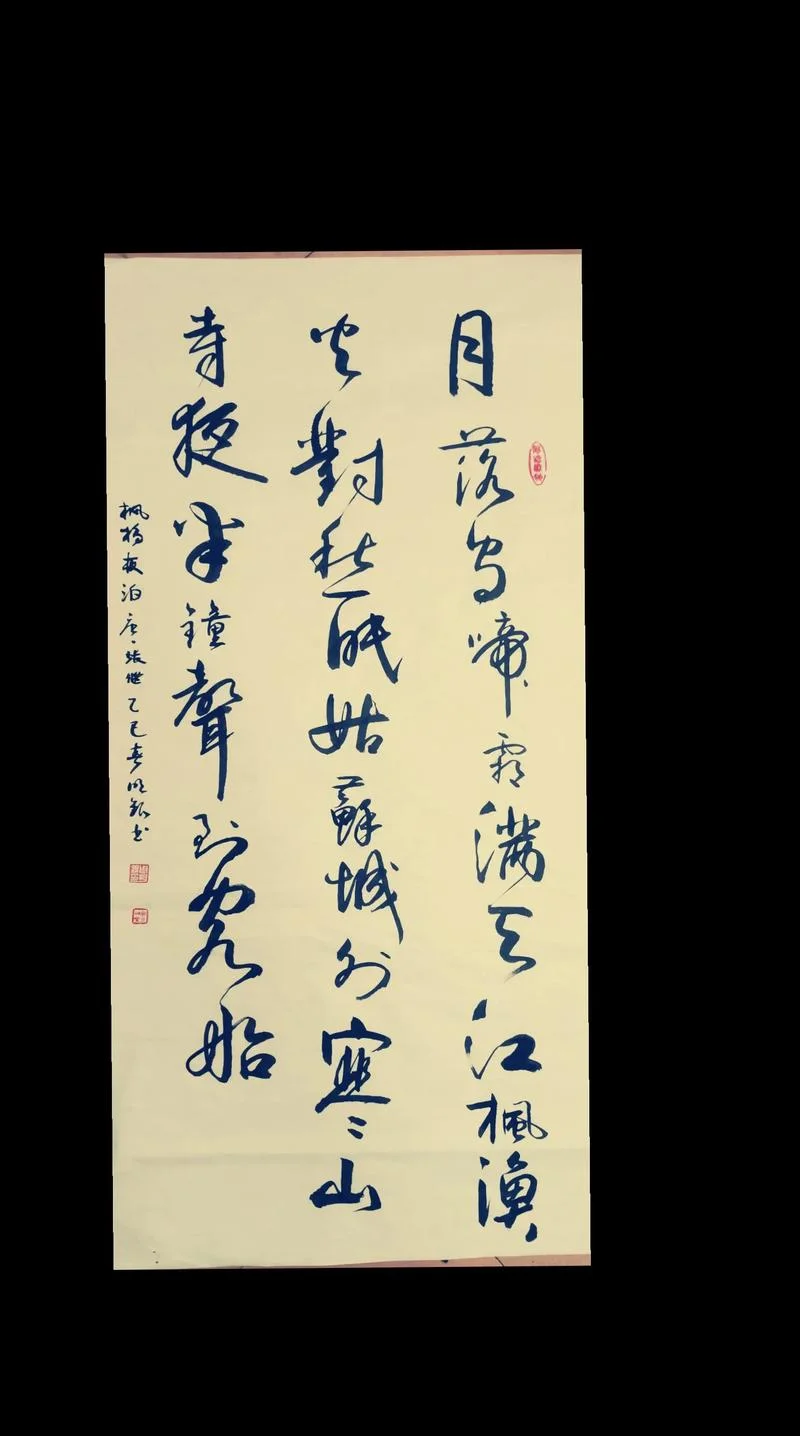 月落烏啼霜滿天江楓漁
火對愁眠姑蘇城外寒山
寺夜半鐘聲到客船
楓橋夜泊唐·張继乙巳春明书